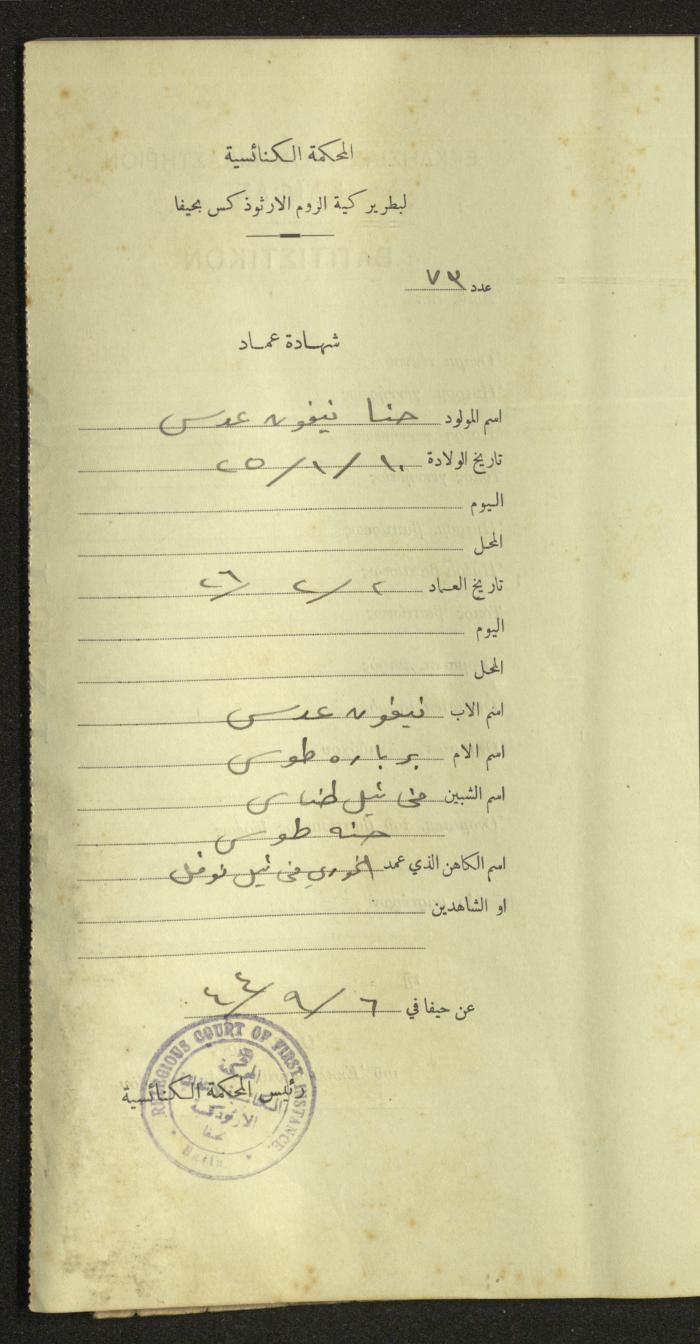 المحكمة الكنائسية
لبطريركية الروم الارثوذكس بحيفا
عدد ٧٣
شهادة عماد
اسم المولود حنا نيفون عدس
تاريخ الولادة ١٠/١/٢٥
اليوم
المحل
تاريخ العماد ٢/٢/٢٦
اليوم
المحل
اسم الاب نيفون عدس
اسم الام برباره طوس
اسم الشبين مخائيل
حنه طوس
اسم الكاهن الذي عمد الخوري مخائيل نوفل
او الشاهدين
عن حيفا في ٦/٩/٤٤
RELIGIOUS COURT OF FIRST INSTANCE.
رئيس المحكمة الكنائسية
الارثوذكسية
بحيفا